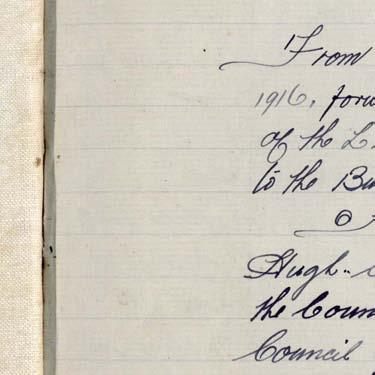 From
1916, forw
of the L
to the Bu
O
Hugh..
the Coun
Council